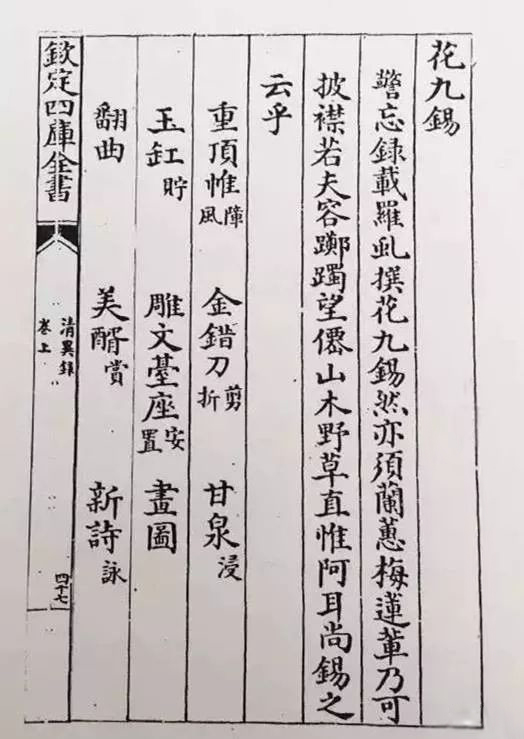 花九錫
警忘録載羅虬撰花九錫然亦須蘭蕙梅蓮輩乃可
披襟若夫容躑躅望僊山木野草直惟阿耳尚錫之
云乎
重頂帷障風 金錯刀剪折 甘泉浸
玉缸貯 雕文臺座安置 畫圖
翻曲 美醑賞 新詩詠
欽定四庫全書
清異録
卷上
四十七